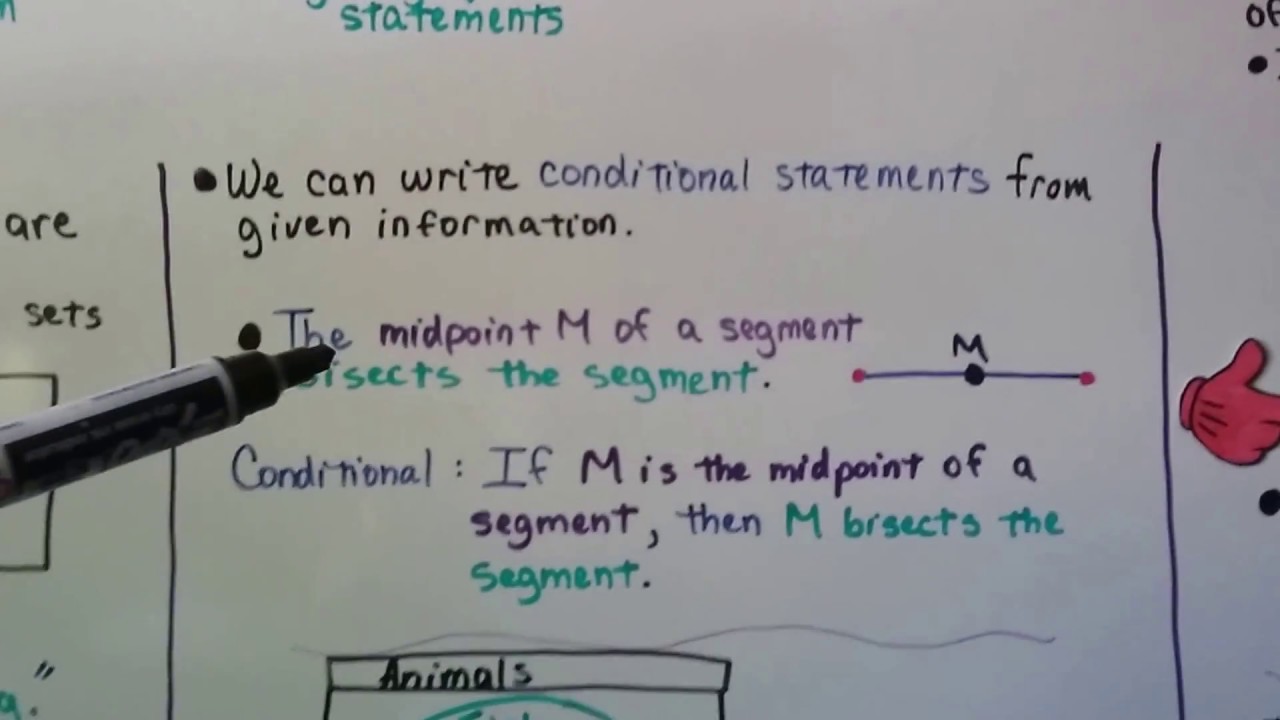 statements
of
are
sets
• We can write conditional statements from
given information.
• The midpoint M of a segment
bisects the segment.
M
Conditional : If M is the midpoint of a
segment, then M bisects the
segment.
Animals
"